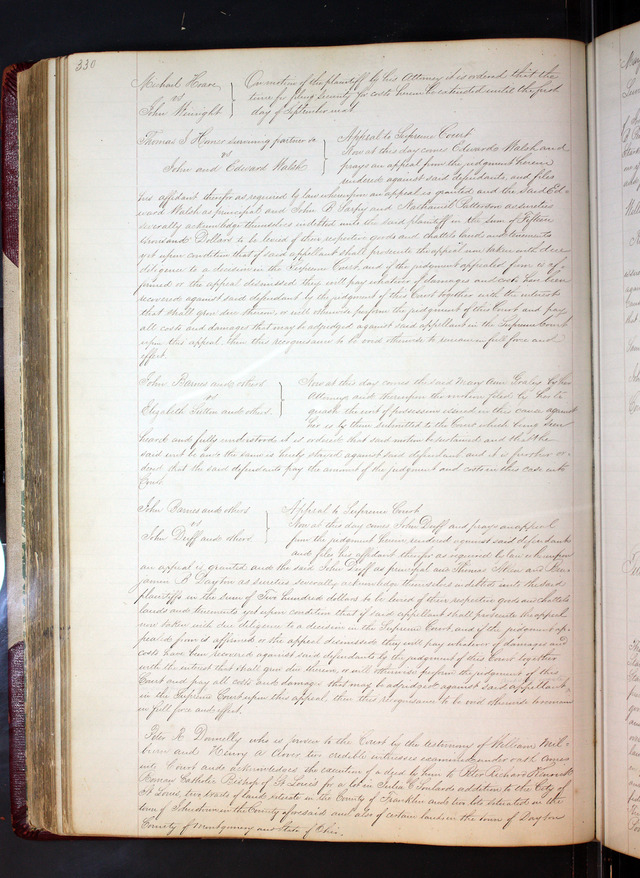 330
Michael Hoare } On motion of the plaintiff by his Attorney it is ordered that the
vs time for filing security for costs herein be extended until the first
John Enright day of September next
Thomas J Homer surviving partner &c } Appeal to Supreme Court
vs Now at this day comes Edward Walsh and
John and Edward Walsh prays an appeal from the judgment herein
rendered against said defendants, and files
his affidavit therefor as required by law whereupon an appeal is granted and the Said Ed-
ward Walsh as principal and John B Sarpy and Nathaniel Patterson as sureties
severally acknowledge themselves indebted unto the said plaintiff in the sum of Fifteen
thousand Dollars to be levied of their respective goods and chattels lands and tenements
yet upon condition that if said appellant shall prosecute the appeal now taken with due
diligence to a decision in the Supreme Court, and if the judgment appealed from is af-
firmed or the appeal dismissed they will pay whatever of damages and costs have been
recovered against said defendant by the judgment of this Court together with the interest
that shall grow due thereon, or will otherwise perform the judgment of this Court and pay
all costs and damages that may be adjudged against said appellant in the Supreme Court
upon this appeal then this recognizance to be void otherwise to remain in full force and
effect.
John Barnes and others } Now at this day comes the said Mary Ann by her
vs Attorney and thereupon the motion filed by her to
Elizabeth and others. quash the writ of possession issued in this cause against
her is by them submitted to the Court which being seen
heard and fully understood it is ordered that said motion be sustained and that the
said writ be and the same is hereby stayed against said defendant and it is further or-
dered that the said defendants pay the amount of the judgment and costs in this case into
Court
John Barnes and others } Appeal to Supreme Court
vs Now at this day comes John Duff and prays an appeal
John Duff and others from the judgment herein rendered against said defendants
and files his affidavit therefor as required by law whereupon
an appeal is granted and the said John Duff as principal and Thomas and Ben-
jamin B Dayton as sureties severally acknowledge themselves indebted unto the said
plaintiffs in the sum of Two hundred dollars to be levied of their respective goods and chattels
lands and tenements yet upon condition that if said appellant shall prosecute the appeal
now taken with due diligence to a decision in the Supreme Court, and if the judgment ap-
pealed from is affirmed or the appeal dismissed they will pay whatever of damages and
costs have been recovered against said defendants by the judgment of this Court together
with the interest that shall grow due thereon, or will otherwise perform the judgment of this
Court and pay all costs and damages that may be adjudged against said appellant
in the Supreme Court upon this appeal, then this recognizance to be void otherwise to remain
in full force and effect.
Peter R Donnelly who is proven to the Court by the testimony of William Mil-
burn and Henry A Clover two credible witnesses examined under oath comes
into Court and acknowledges the execution of a deed by him to Peter Richard Kenrick
Roman Catholic Bishop of St Louis for a lot in Julia C addition to the City of
St Louis, two tracts of land situate in the County of Franklin and two lots situated in the
town of in the County aforesaid and also of certain lands in the town of Dayton
County of Montgomery and State of Ohio.